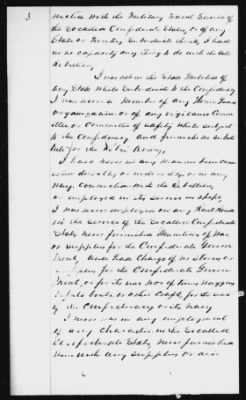 3
nected with the Military Naval Service of
the So called Confederate States, or of any
State or Territory Subordinate thereto, I had
in no capacity any thing to do with the late
Rebellion,
I was not in the State Militia of
any State While Subordinate to the Confederacy
I was never a Member of any Home Guard
organization or of any Vigilance Comm
ittee or Committee of Safety While Subject
to the Confederacy and furnished no Substi
tute for the Rebel Army,
I have never in any manner been conn
directly or indirectly or in any
way, connected with the Rebellion
or employed in its Service or
I was never employed on any Rail Road
in the Service of the So called Confederate
States never furnished Munitions of War
or Supplies for the Confederate Govern
ment, and had Charge of no Stores or
Supplies for the Confederate Govern
ment, or for its use nor of Teams Waggons
boats or other Craft, for the use
of the Confederacy or its Navy
I never was in any employment
of any Character, in the So called
Confederate States, never furnished
them with any Supplies or